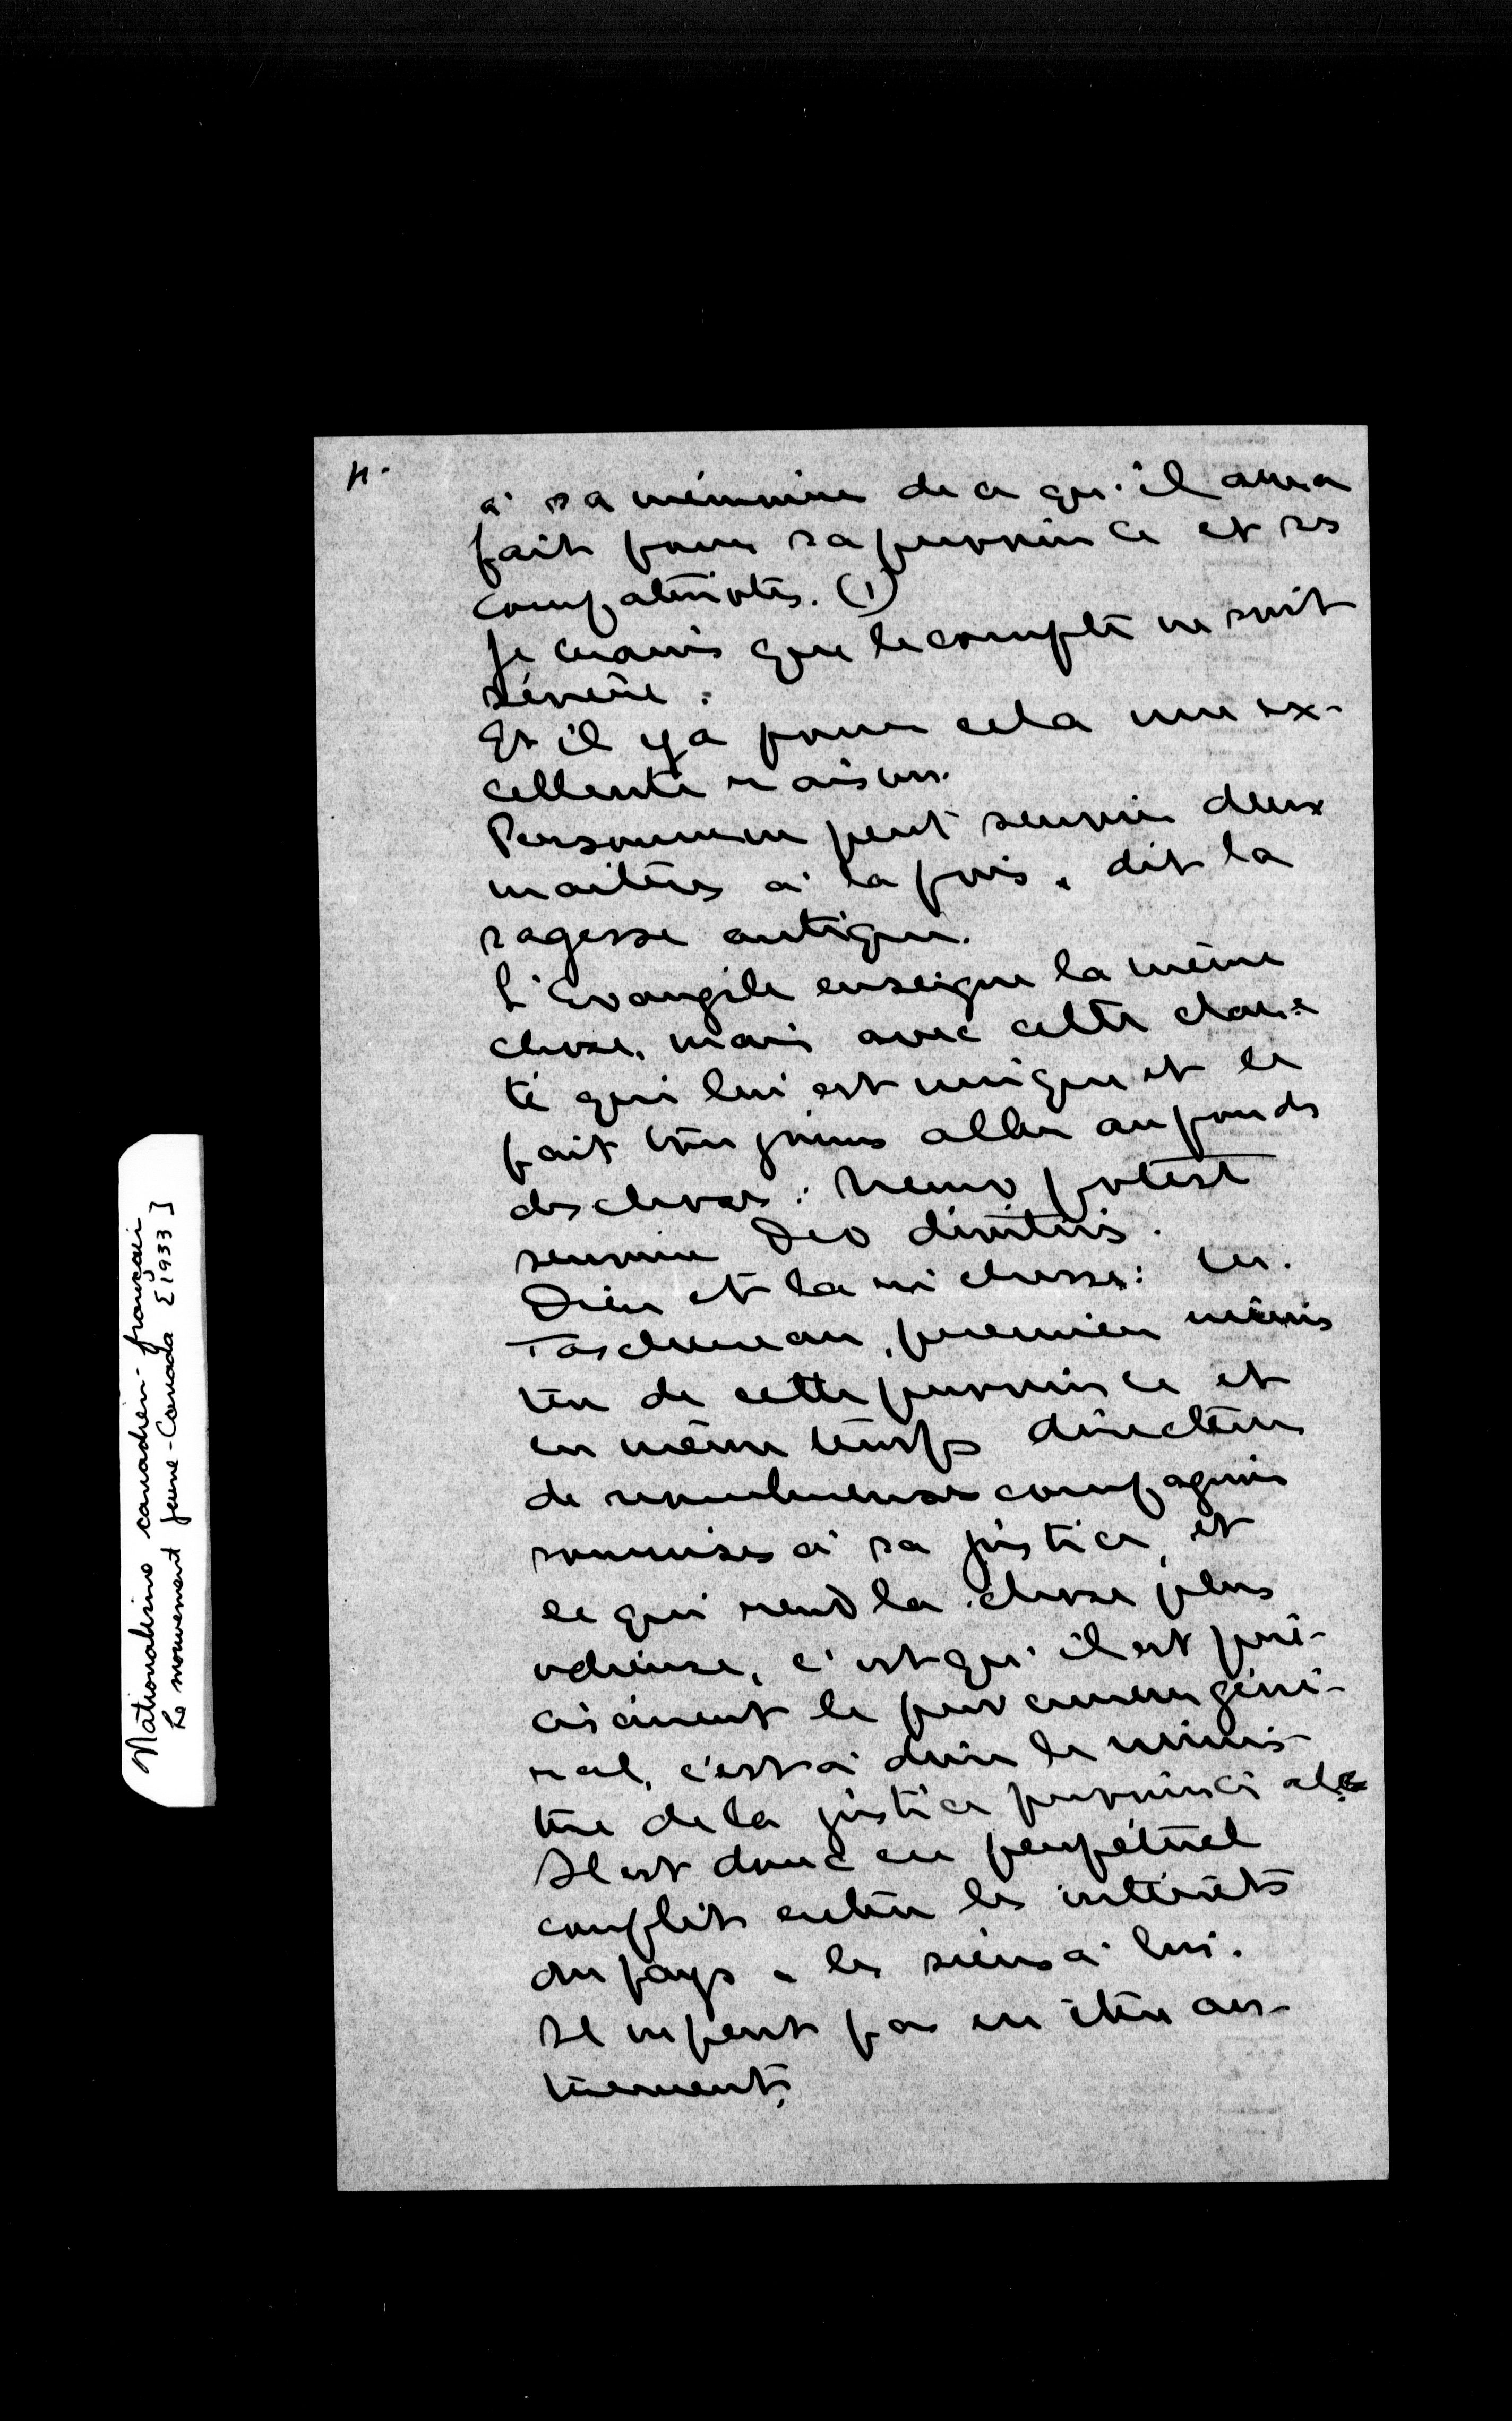 4.
à sa mémoire de ce qu'il aura
fait pour sa province et ses
compatriotes. (1)
Je crains que le compte ne soit
sévère :
Et il y a pour cela une ex-
cellente raison.
Personne ne peut servir deux
maîtres à la fois, dit la
sagesse antique.
L'Evangile enseigne la même
chose, mais avec cette clar-
té qui lui est unique et le
fait toujours aller au fond
des choses : Nemo potest
servire Deo divitiis.
Dieu et la richesse : M.
Taschereau, premier minis
tre de cette province et
en même temps directeur
de nombreuses compagnies
soumises à sa justice, et
ce qui rend la chose plus
odieuse, c'est qu'il est pré-
cisément le procureur géné-
ral, c'est à dire le minis-
tre de la justice provinciale
Il est donc en perpétuel
conflit entre les intérêts
du pays & les siens à lui.
Il ne peut pas en être au-
trement.
Nationalisme canadien-français
Le mouvement Jeune-Canada [1933]